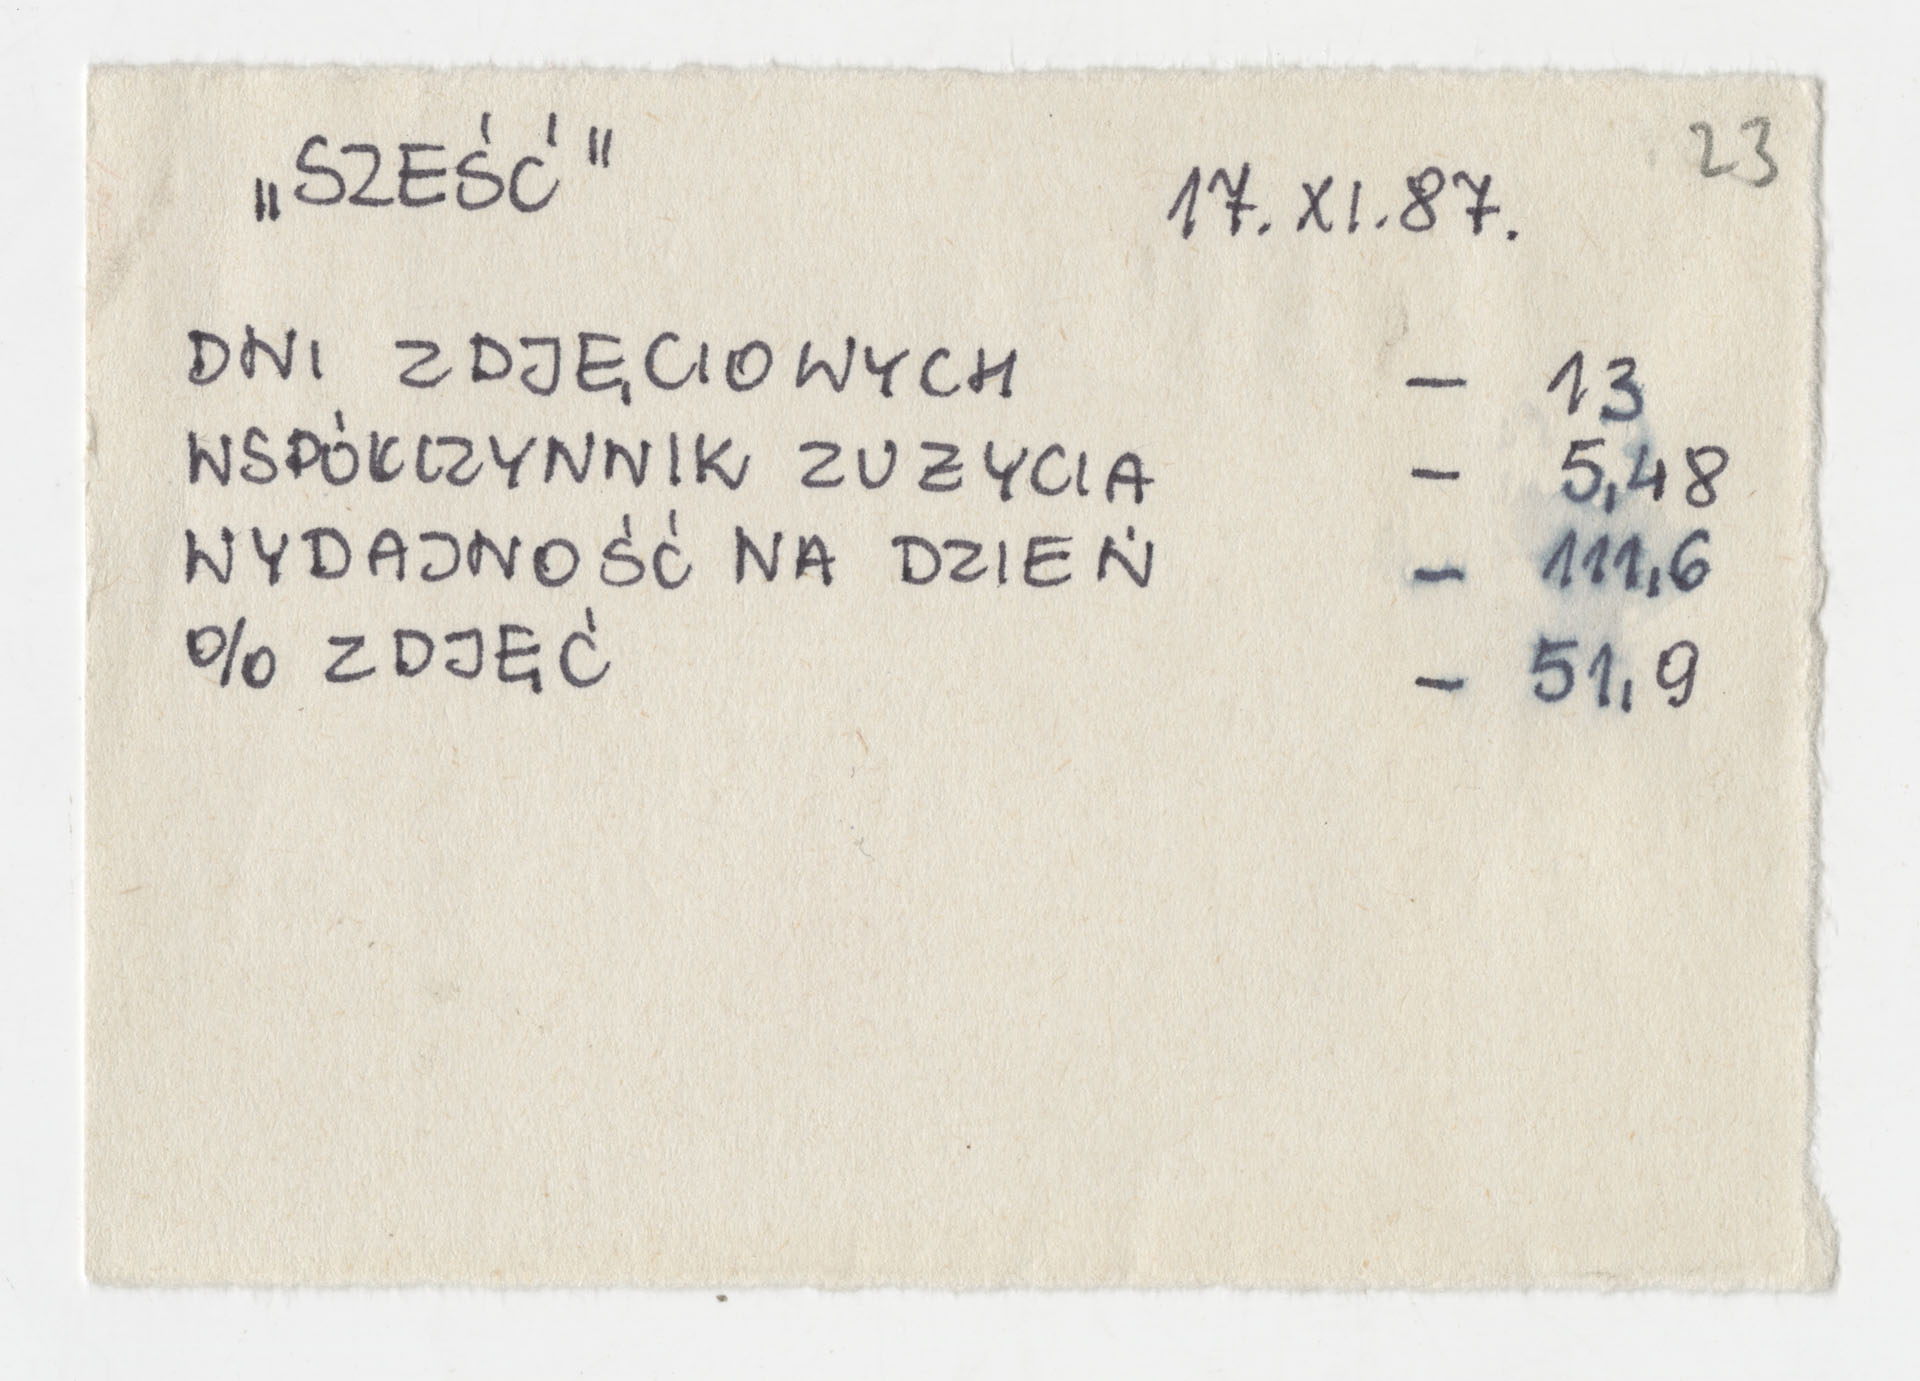 23
„SZEŚĆ" 17.XI.87.
DNI ZDJĘCIOWYCH – 13
WSPÓŁCZYNNIK ZUZYCIA – 5,48
WYDAJNOŚĆ NA DZIEŃ – 111,6
% ZDJĘĆ – 51,9